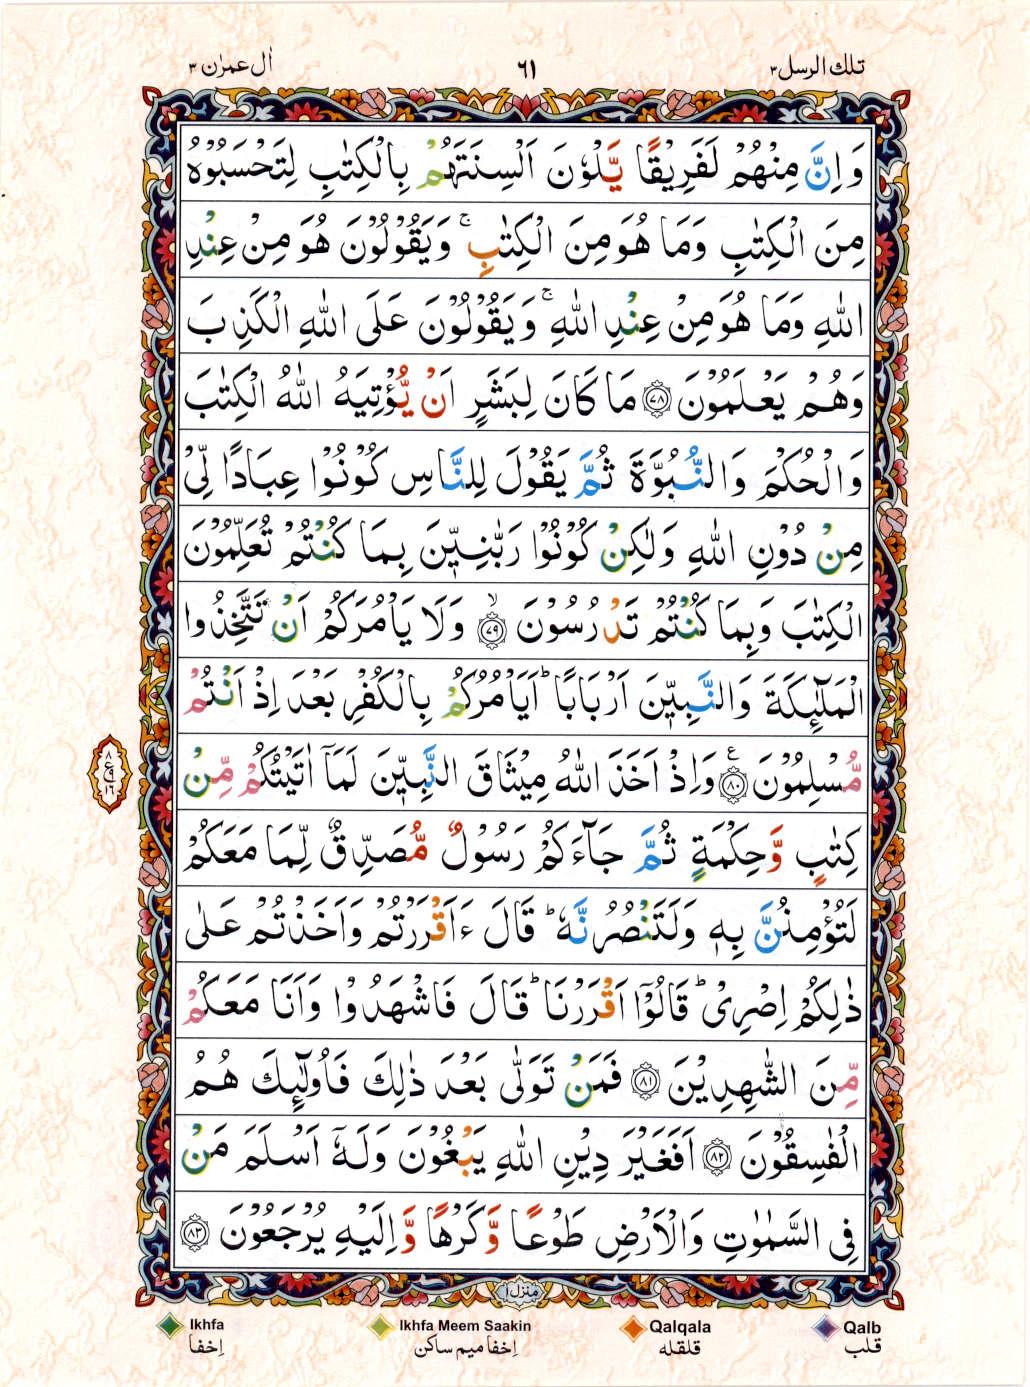 تلك الرسل ٣ ٦١ اٰل عمرٰن ٣
وَاِنَّ مِنْهُمْ لَفَرِيْقًا يَّلْوٗنَ اَلْسِنَتَهُمْ بِالْكِتٰبِ لِتَحْسَبُوْهُ
مِنَ الْكِتٰبِ وَمَا هُوَ مِنَ الْكِتٰبِ ۚ وَيَقُوْلُوْنَ هُوَ مِنْ عِنْدِ
اللّٰهِ وَمَا هُوَ مِنْ عِنْدِ اللّٰهِ ۚ وَيَقُوْلُوْنَ عَلَى اللّٰهِ الْكَذِبَ
وَهُمْ يَعْلَمُوْنَ ۝٧٨ مَا كَانَ لِبَشَرٍ اَنْ يُّؤْتِيَهُ اللّٰهُ الْكِتٰبَ
وَالْحُكْمَ وَالنُّبُوَّةَ ثُمَّ يَقُوْلَ لِلنَّاسِ كُوْنُوْا عِبَادًا لِّيْ
مِنْ دُوْنِ اللّٰهِ وَلٰكِنْ كُوْنُوْا رَبّٰنِيّٖنَ بِمَا كُنْتُمْ تُعَلِّمُوْنَ
الْكِتٰبَ وَبِمَا كُنْتُمْ تَدْرُسُوْنَ ۙ۝٧٩ وَلَا يَاْمُرَكُمْ اَنْ تَتَّخِذُوا
الْمَلٰٓئِكَةَ وَالنَّبِيّٖنَ اَرْبَابًا ؕ اَيَاْمُرُكُمْ بِالْكُفْرِ بَعْدَ اِذْ اَنْتُمْ
مُّسْلِمُوْنَ ۝٨٠ ع وَاِذْ اَخَذَ اللّٰهُ مِيْثَاقَ النَّبِيّٖنَ لَمَاۤ اٰتَيْتُكُمْ مِّنْ
٨ ع ٩ ١٦
كِتٰبٍ وَّحِكْمَةٍ ثُمَّ جَآءَكُمْ رَسُوْلٌ مُّصَدِّقٌ لِّمَا مَعَكُمْ
لَتُؤْمِنُنَّ بِهٖ وَلَتَنْصُرُنَّهٗ ؕ قَالَ ءَاَقْرَرْتُمْ وَاَخَذْتُمْ عَلٰى
ذٰلِكُمْ اِصْرِيْ ؕ قَالُوْۤا اَقْرَرْنَا ؕ قَالَ فَاشْهَدُوْا وَاَنَا مَعَكُمْ
مِّنَ الشّٰهِدِيْنَ ۝٨١ فَمَنْ تَوَلّٰى بَعْدَ ذٰلِكَ فَاُولٰٓئِكَ هُمُ
الْفٰسِقُوْنَ ۝٨٢ اَفَغَيْرَ دِيْنِ اللّٰهِ يَبْغُوْنَ وَلَهٗۤ اَسْلَمَ مَنْ
فِي السَّمٰوٰتِ وَالْاَرْضِ طَوْعًا وَّكَرْهًا وَّاِلَيْهِ يُرْجَعُوْنَ ۝٨٣
منزل ١
Ikhfa Ikhfa Meem Saakin Qalqala Qalb
اِخفا اِخفا میم ساکن قلقله قلب